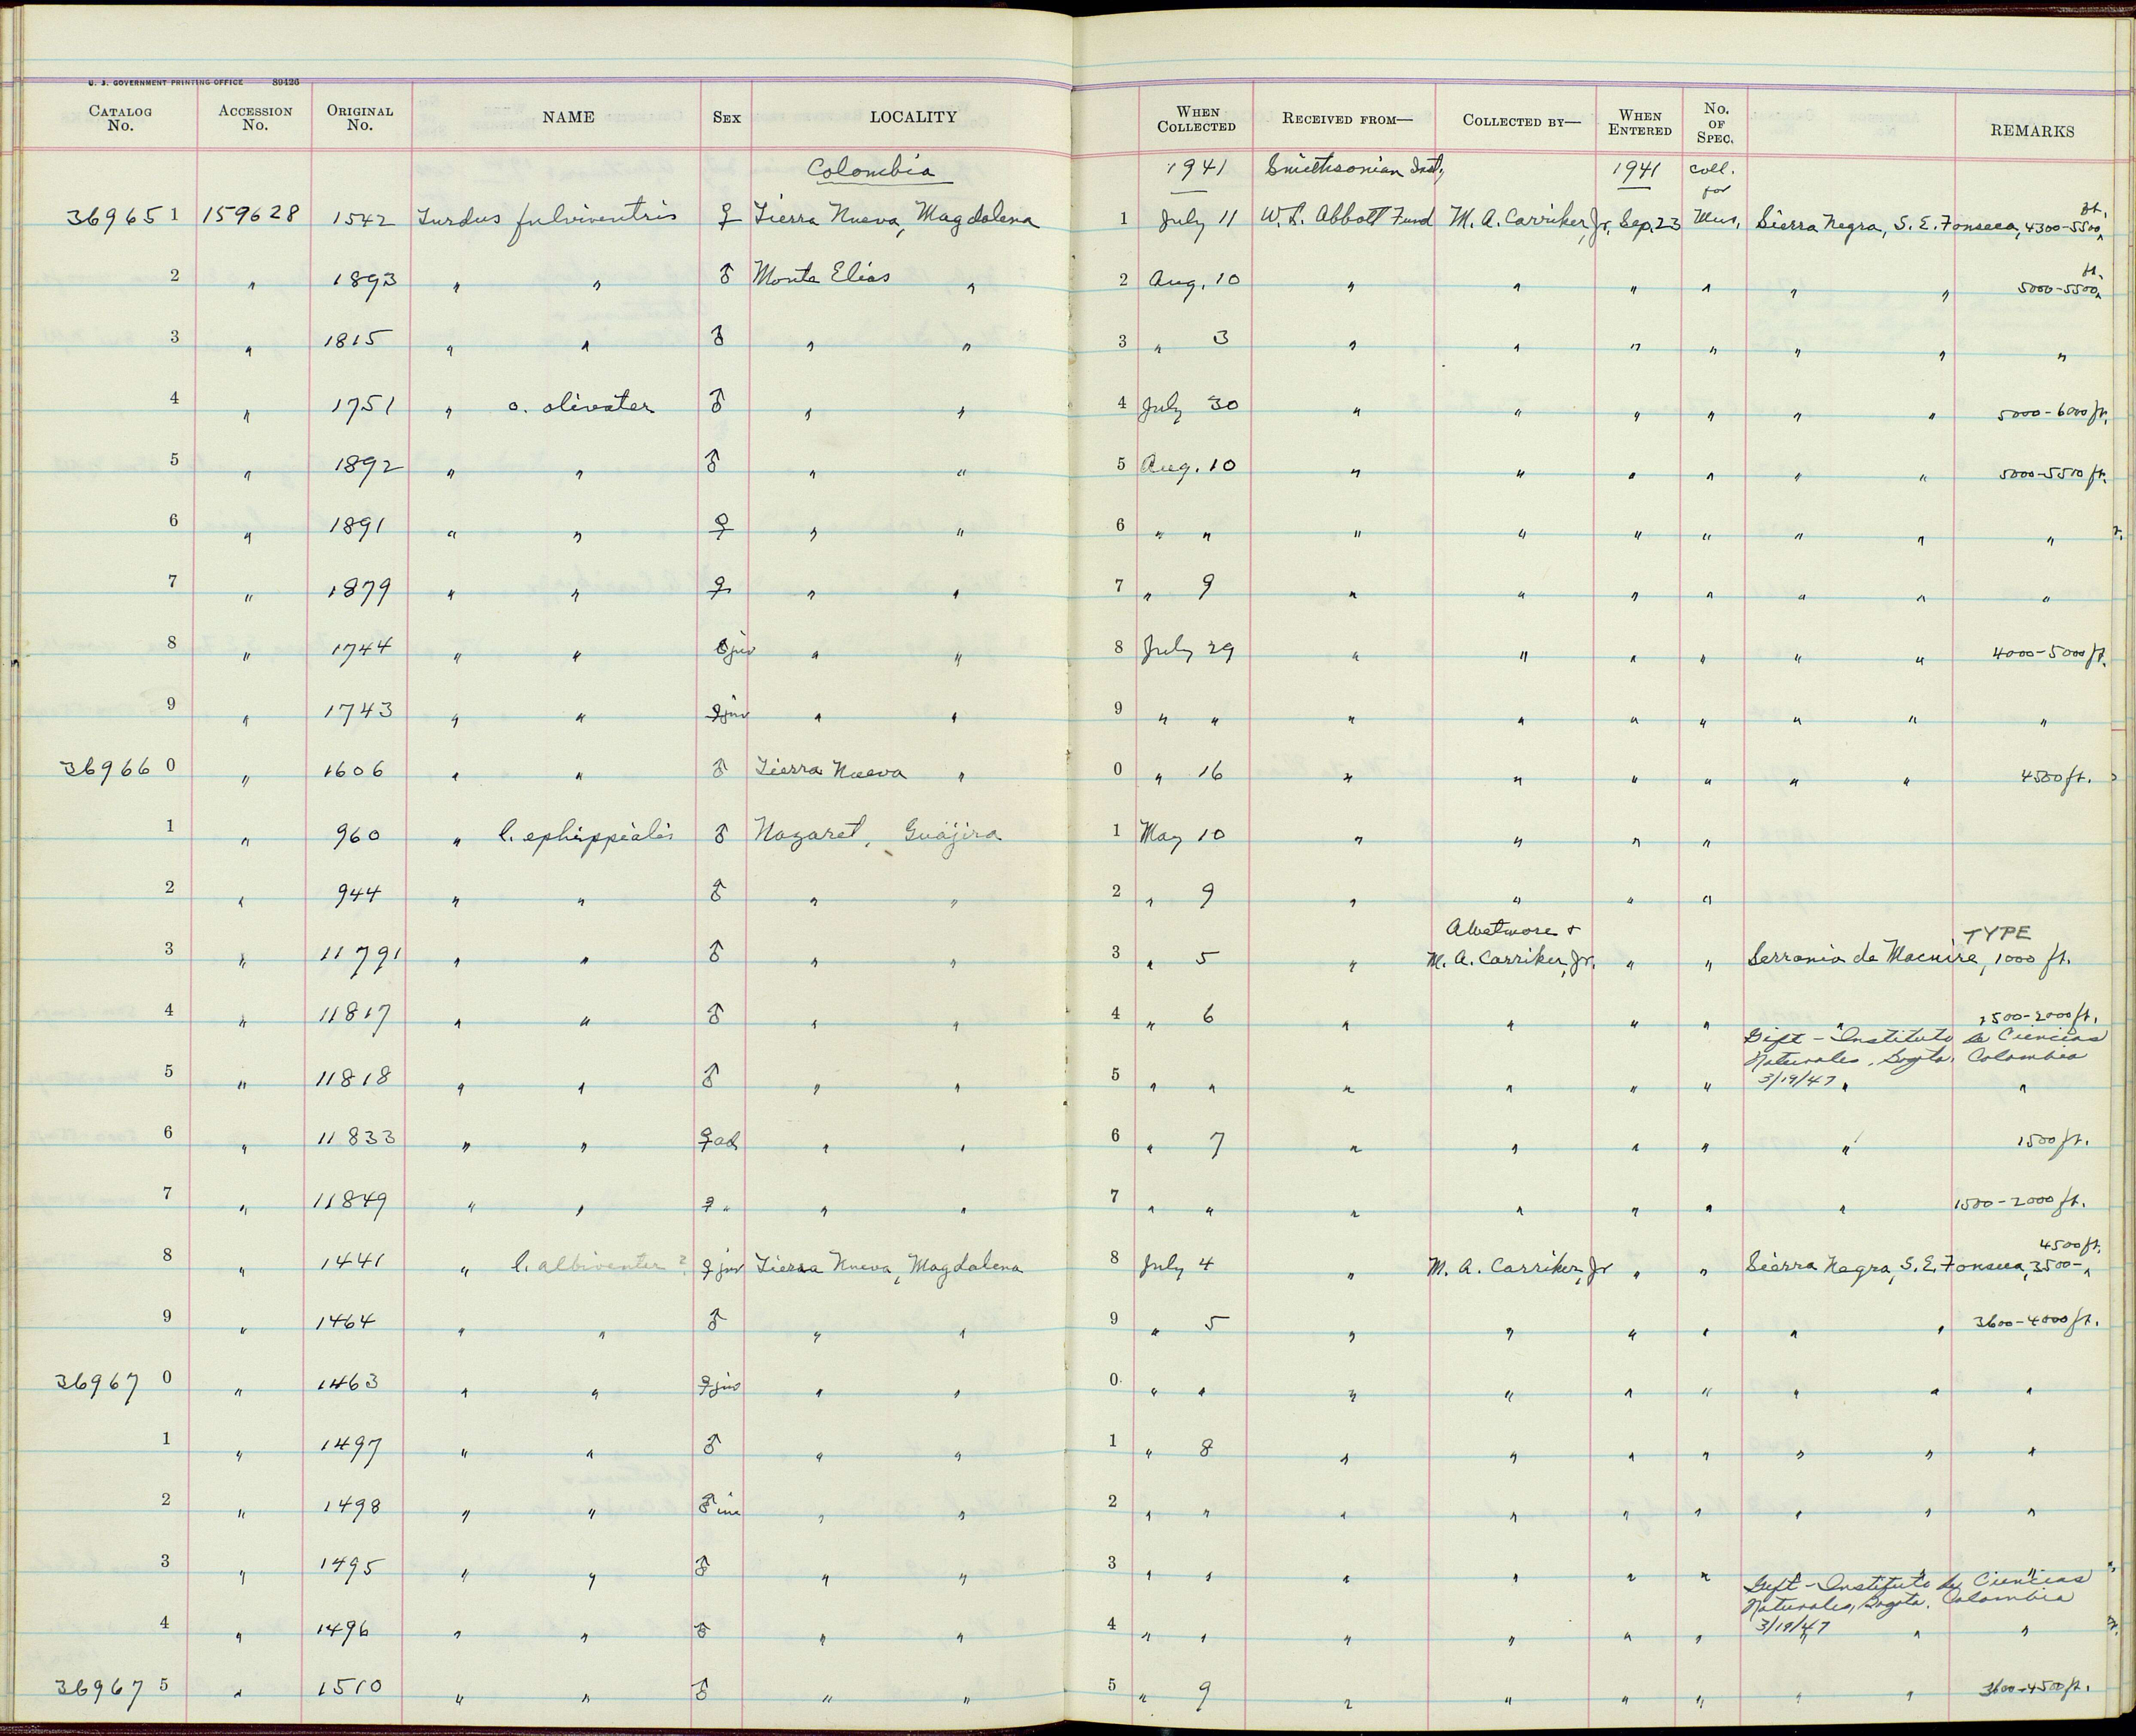 U. S. GOVERNMENT PRINTING OFFICE 89426
CATALOG No. ACCESSION No. ORIGINAL No. NAME SEX LOCALITY WHEN COLLECTED RECEIVED FROM— COLLECTED BY— WHEN ENTERED No. OF SPEC. REMARKS
Colombia 1941 Smithsonian Inst, 1941 coll. for
369651 159628 1542 Turdus fulviventris ♀ Tierra Nueva, Magdalena 1 July 11 W. L. Abbott Fund M. A. Carriker, Jr. Sep. 23 Mus. Sierra Negra, S. E. Fonseca, 4300-5500 ft.
2 " 1893 " " ♂ Monte Elias " 2 Aug. 10 " " " " " " 5000-5500 ft.
3 " 1815 " " ♂ " " 3 " 3 " " " " " " "
4 " 1751 " o. olivater ♂ " " 4 July 30 " " " " " " 5000-6000 ft.
5 " 1892 " " ♂ " " 5 Aug. 10 " " " " " " 5000-5500 ft.
6 " 1891 " " ♀ " " 6 " " " " " " " " "
7 " 1879 " " ♀ " " 7 " 9 " " " " " " "
8 " 1744 " " ♂ juv " " 8 July 29 " " " " " " 4000-5000 ft.
9 " 1743 " " ♀ juv " " 9 " " " " " " " " "
369660 " 1606 " " ♂ Tierra Nueva " 0 " 16 " " " " " " 4500 ft.
1 " 960 " l. ephippialis ♂ Nazaret, Guajira 1 May 10 " " " "
2 " 944 " " ♂ " " 2 " 9 " " " "
A Wetmore & TYPE
3 " 11791 " " ♂ " " 3 " 5 " M. A. Carriker, Jr. " " Serrania de Macuire, 1000 ft.
4 " 11817 " " ♂ " " 4 " 6 " " " " " 1500-2000 ft.
Gift - Instituto de Ciencias
Naturales, Bogota, Colombia
5 " 11818 " " ♂ " " 5 " " " " " " 3/19/47 " "
6 " 11833 " " ♀ ad " " 6 " 7 " " " " " 1500 ft.
7 " 11849 " " ♀ " " " 7 " " " " " " " 1500-2000 ft.
8 " 1441 " l. albiventer? ♀ juv Tierra Nueva, Magdalena 8 July 4 " M. A. Carriker, Jr " " Sierra Negra, S. E. Fonseca, 3500-4500 ft.
9 " 1464 " " ♂ " " 9 " 5 " " " " " " 3600-4000 ft.
369670 " 1463 " " ♀ juv " " 0 " " " " " " " " "
1 " 1497 " " ♂ " " 1 " 8 " " " " " " "
2 " 1498 " " ♂ im " " 2 " " " " " " " " "
3 " 1495 " " ♂ " " 3 " " " " " " " " "
Gift - Instituto de Ciencias
Naturales, Bogota, Colombia
4 " 1496 " " ♂ " " 4 " " " " " " 3/19/47 " " "
369675 " 1510 " " ♂ " " 5 " 9 " " " " " " 3600-4500 ft.